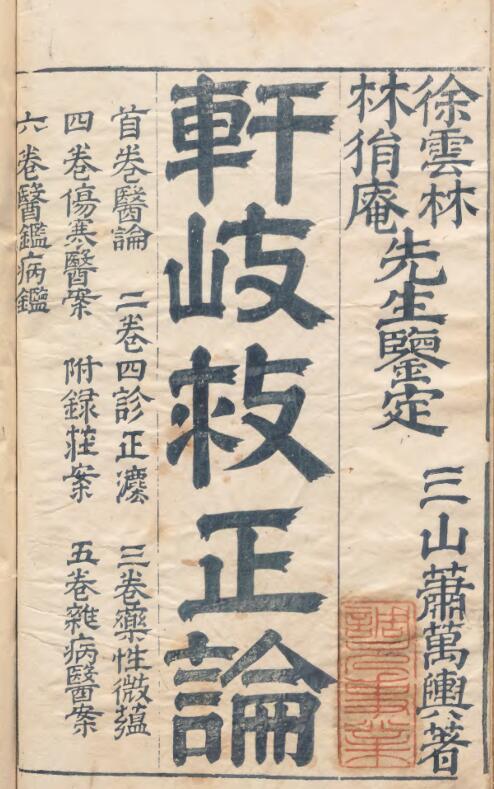 徐雲林
林俏庵
先生鑒定
三山蕭萬輿著
軒岐救正論
首卷醫論 二卷四診正灋 三卷藥性微蘊
四卷傷寒醫案 附錄痘案 五卷雜病醫案
六卷醫鑑病鑑